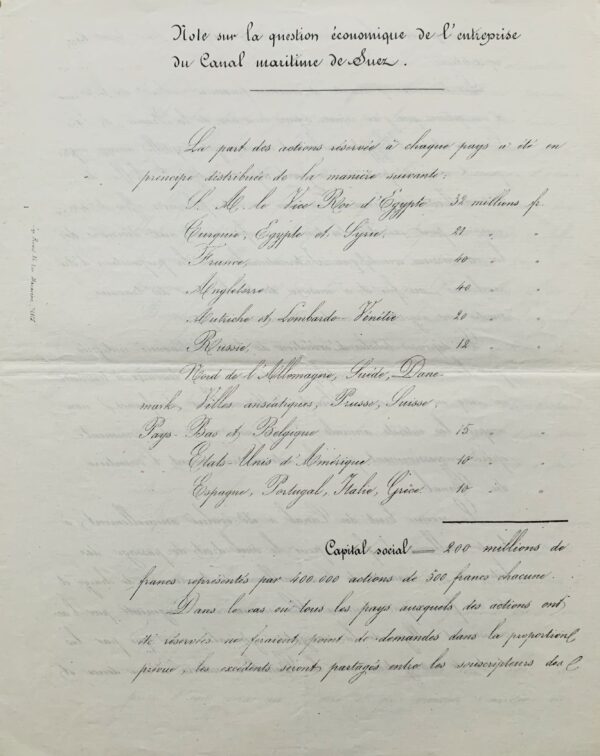 Note sur la question économique de l'entreprise
du Canal maritime de Suez.
La part des actions réservée à chaque pays a été en
principe distribuée de la manière suivante:
S. A. le Vice Roi d'Égypte 32 millions fr.
Turquie, Egypte et Syrie 21 " "
France, 40 " "
Angleterre 40 " "
Autriche et Lombardo-Vénétie 20 " "
Russie, 12 " "
Nord de l'Allemagne, Suède, Dane
mark, Villes anséatiques, Prusse, Suisse,
Pays-Bas et Belgique 15 " "
États-Unis d'Amérique 10 " "
Espagne, Portugal, Italie, Grèce 10 " "
Capital social — 200 millions de
francs représentés par 400.000 actions de 500 francs chacune.
Dans le cas où tous les pays auxquels des actions ont
été réservées ne feraient point de demandes dans la proportion
prévue, les excédents seront partagés entre les souscripteurs des